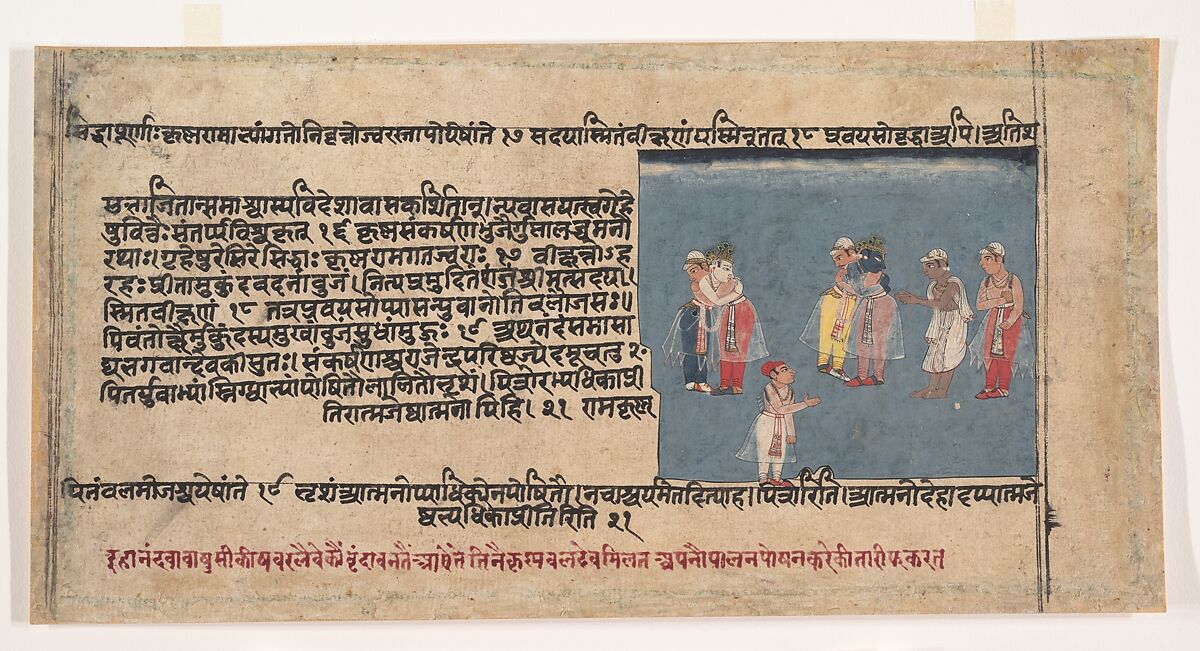 सिद्धाःपूर्णाः कृष्णरामाभ्यांगतोनिवृत्तोज्वरस्तापोयेषांते १७ सदयंस्मितंवीक्षणंयस्मिन्तत् १८ प्रवयसोवृद्धाअपि। अतिश
सभाजितान्समाश्वास्यविदेशावासकर्शितान्। न्यवासयत्स्वगेहे
षुवित्तैःसंतर्प्यविश्वकृत् १६ कृष्णसंकर्षणभुजैर्गुप्तालब्धमनो
रथाः। गृहेषुरेमिरेसिद्धाः कृष्णरामगतज्वराः १७ वीक्षंतोऽह
रहः प्रीतामुकुंदवदनांबुजं। नित्यंप्रमुदितंश्रीमत्सदय।
स्मितवीक्षणं १८ तत्रप्रवयसोप्यासन्युवानोतिबलौजसः॥
पिबंतोक्षैर्मुकुंदस्यमुखांबुजसुधांमुहुः १९ अथनंदंसमासा
द्यभगवान्देवकीसुतः। संकर्षणश्चराजेंद्रपरिष्वज्येदमूचतुः २०
पितर्युवाभ्यांस्निग्धाभ्यांपोषितौलालितौभृशं। पित्रोरभ्यधिकाप्री
तिरात्मजेष्वात्मनोपिहि। २१ रामकृष्ण
बलमोजश्चयेषांते १९ भृशंआत्मनोप्याधिक्येनपोषितौ। नचाश्चर्यमेतदित्याह। पित्रोरिति। आत्मनोदेहादप्यात्मजे
ष्वभ्यधिकाप्रीतिरिति २१
इहानंदबाबा वृंदावनतैंआयेते तिनैकृष्णबलदेवमिलत अपनौपालनपोषनकरेकीतारीफकरत